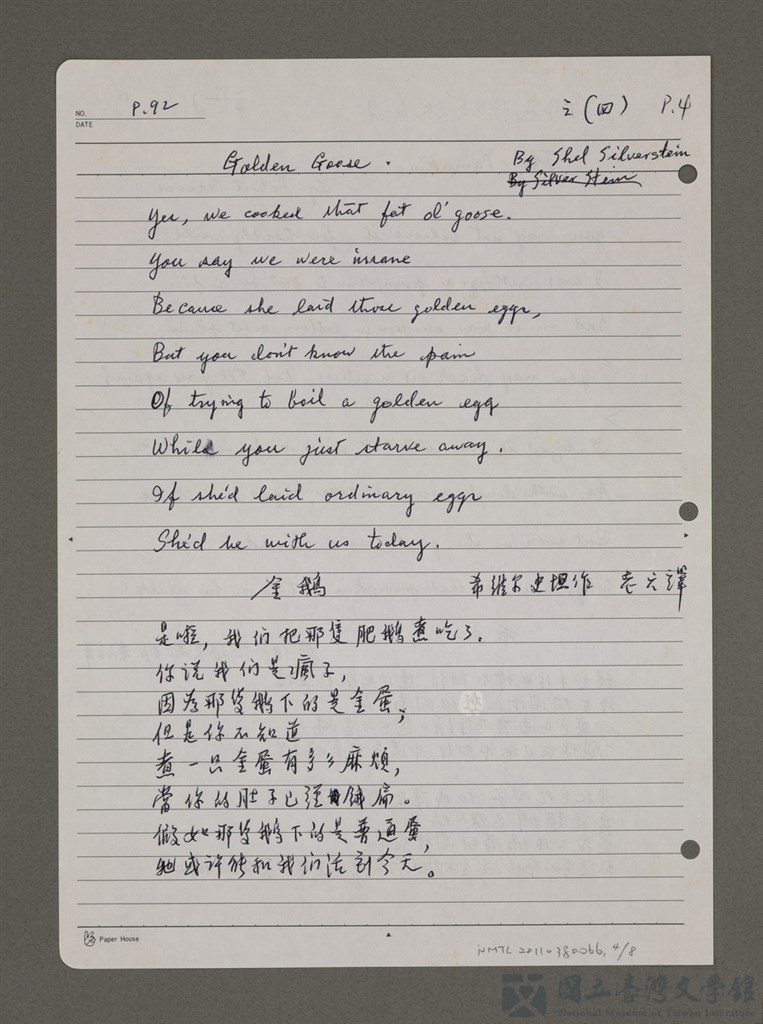 NO. P.92
DATE
之(四) P.4
Golden Goose.
By Shel Silverstein
By Silver Stein
Yes, we cooked that fat ol' goose.
You say we were insane
Because she laid those golden eggs,
But you don't know the pain
Of trying to boil a golden egg
While you just starve away.
If she'd laid ordinary eggs
She'd be with us today.
金鵝
希維尔史坦作 老六譯
是啦,我们把那隻肥鵝煮吃了.
你说我们是瘋子,
因為那隻鵝下的是金蛋;
但是你不知道
煮一只金蛋有多么麻煩,
當你的肚子已經餓扁。
假如那隻鵝下的是普通蛋,
她或许能和我们活到今天。
Paper House
NMTL 20110380066, 4/8
國立臺灣文學館
National Museum of Taiwan Literature